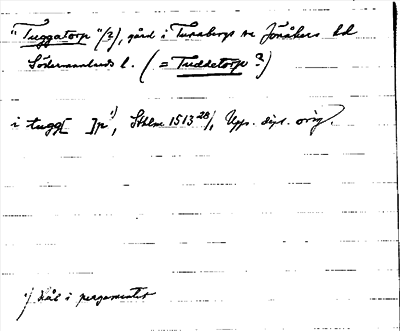 "Tuggatorp" (?), gård i Tunabergs sn Jönåkers hd
Södermanlands l. (= Tuddetorp ?)
i tugg[ ]p 1), Sthlm 1513 28/, Upps. dipl. orig.
1) hål i pergamentet